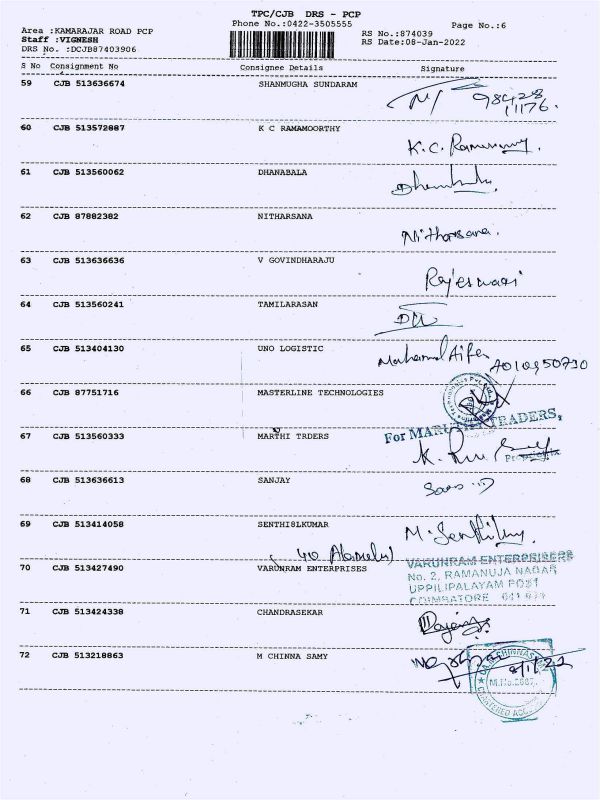 TPC/CJB DRS - PCP
Phone No.:0422-3505555
Page No.:6
Area :KAMARAJAR ROAD PCP
Staff :VIGNESH
DRS No. :DCJB87403906
RS No.:874039
RS Date:08-Jan-2022
S No Consignment No Consignee Details Signature
59 CJB 513636674 SHANMUGHA SUNDARAM
98428
11176.
60 CJB 513572887 K C RAMAMOORTHY
61 CJB 513560062 DHANABALA
62 CJB 87882382 NITHARSANA Nitharsana.
63 CJB 513636636 V GOVINDHARAJU Rajeswari
64 CJB 513560241 TAMILARASAN
65 CJB 513404130 UNO LOGISTIC
66 CJB 87751716 MASTERLINE TECHNOLOGIES
67 CJB 513560333 MARTHI TRDERS
68 CJB 513636613 SANJAY
69 CJB 513414058 SENTHISLKUMAR
70 CJB 513427490 VARUNRAM ENTERPRISES
VARUNRAM ENTERPRISERS
No. 2, RAMANUJA NAGAR
UPPILIPALAYAM POST
COIMBATORE
71 CJB 513424338 CHANDRASEKAR
72 CJB 513218863 M CHINNA SAMY